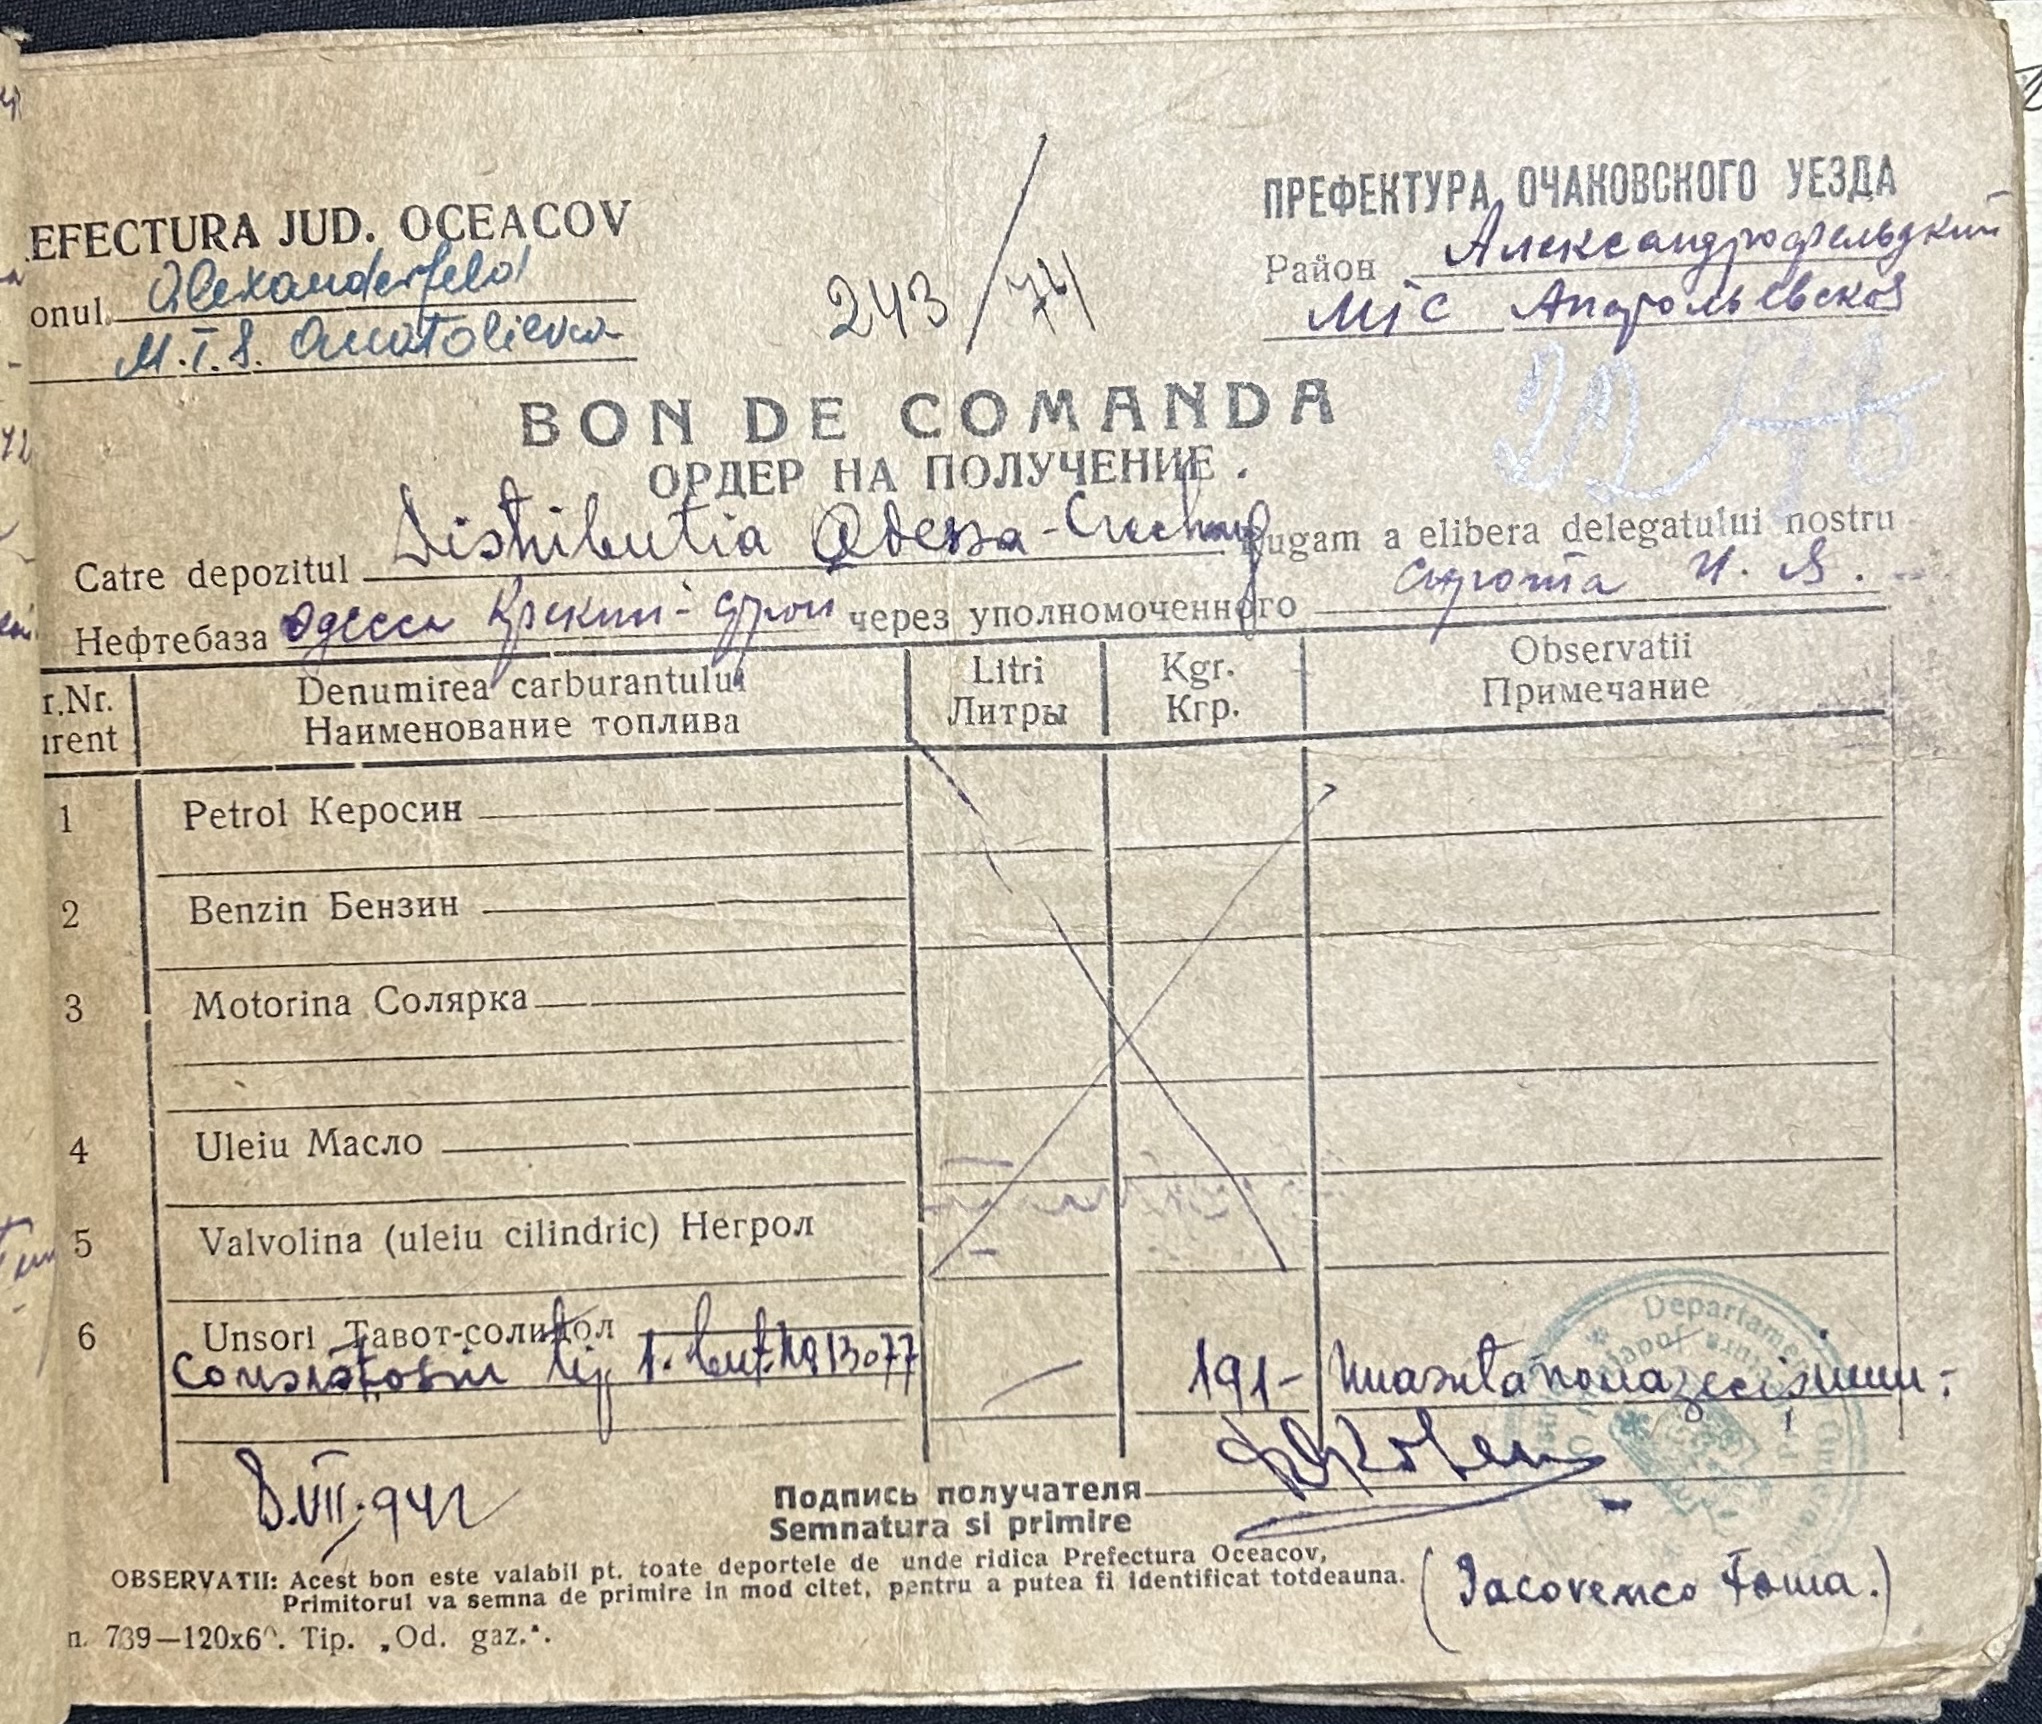 EFECTURA JUD. OCEACOV
onul. Alexanderfeld
M.T.S. Anatolievca
243/74
ПРЕФЕКТУРА ОЧАКОВСКОГО УЕЗДА
Район Александрофельдский
МТС
BON DE COMANDA
ОРДЕР НА ПОЛУЧЕНИЕ.
Catre depozitul Distributia Odessa - rugam a elibera delegatului nostru
Нефтебаза Одесса через уполномоченного Сирота И.
r.Nr. Denumirea carburantului Litri Kgr. Observatii
urent Наименование топлива Литры Кгр. Примечание
1 Petrol Керосин
2 Benzin Бензин
3 Motorina Солярка
4 Uleiu Масло
5 Valvolina (uleiu cilindric) Негрол
6 Unsori Тавот-солидол
tip 1. but. 13077 — 191-
8.VII.942
Подпись получателя
Semnatura si primire
OBSERVATII: Acest bon este valabil pt. toate deportele de unde ridica Prefectura Oceacov,
Primitorul va semna de primire in mod citet, pentru a putea fi identificat totdeauna.
(Iacovenco Foma.)
n. 739—120x6 . Tip. „Od. gaz.".